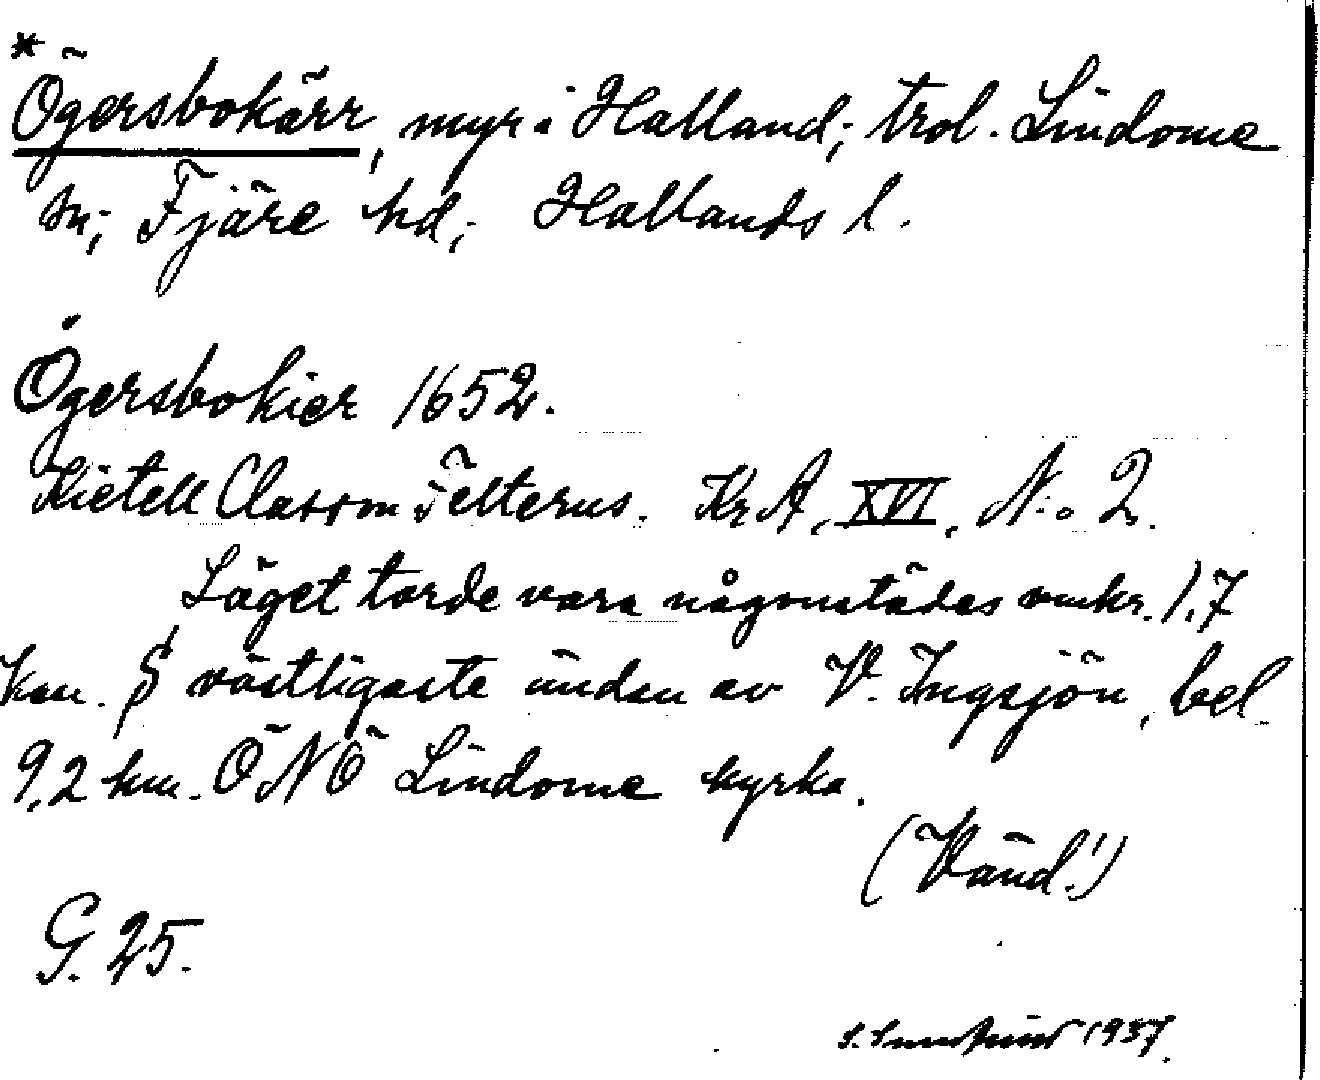 * Ögersbokärr, myr i Halland; trol. Lindome
sn; Fjäre hd; Hallands l.
Ögersbokier 1652.
Kietell Classon Felterus. KrA, XVI, N:o 2.
Läget torde vara någonstädes omkr. 1,7
km. S västligaste ändan av V. Ingsjön, bel.
9,2 km. ÖNÖ Lindome kyrka.
(Vänd!)
G. 25.
1937.